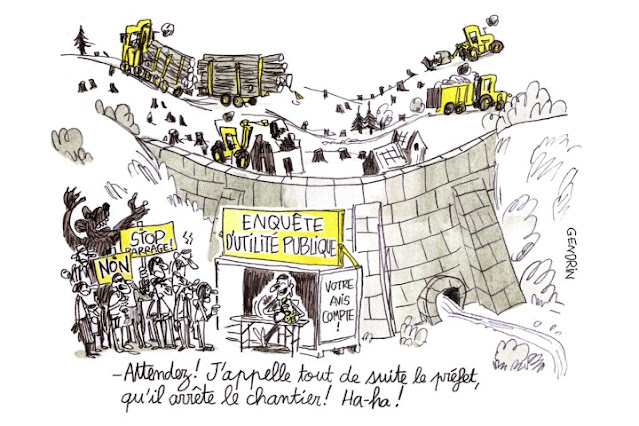 ENQUÊTE
D'UTILITÉ PUBLIQUE
STOP
BARRAGE!
NON
VOTRE
AVIS
COMPTE
!
GENDRIN
- Attendez! J'appelle tout de suite le préfet,
qu'il arrête le chantier! Ha-ha!